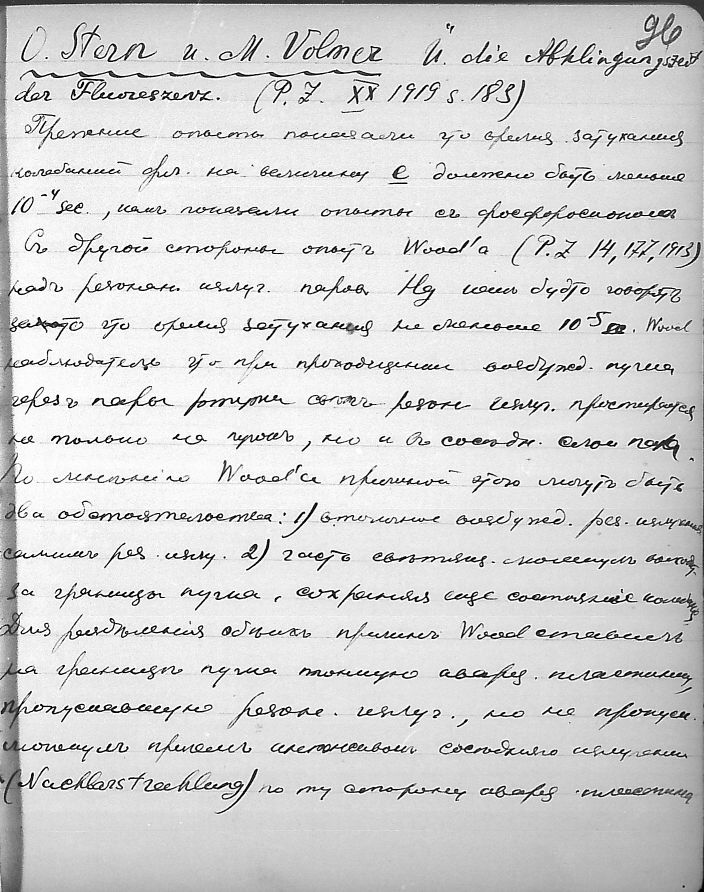 96
O. Stern u. M. Volmer Ü. die Abklingungszeit
der Fluoreszenz. (P. Z. XX 1919 s. 183)
Прежние опыты показали что время затухания
колебаний фл. на величину e должно быть меньше
10⁻⁴ sec., как показали опыты съ фосфороскопомъ
Съ другой стороны опытъ Wood'a (P. Z 14, 177, 1913)
надъ резонан. излуч. паровъ Hg какъ будто говорятъ
что время затуханiя не меньше 10⁻⁵. Wood
наблюдателъ что при прохождении возбужд. пучка
через пары ртути свѣтъ резон излуч. простирается
не только на пучокъ, но и въ сосѣдн. слои пара.
По мнѣнiю Wood'a причиной этого могутъ быть
два обстоятельства: 1) вторичное возбужд. рез. излучения
самимъ рез. излу. 2) часть свѣтящ. молекулъ выходу
за границы пучка, сохраняя еще состоянiе колебанiя
Для раздѣленiя обѣихъ причинъ Wood ставилъ
на границѣ пучка тонкую кварц. пластинку,
пропускавшую резон. излуч., но не пропуск.
молекулъ причемъ интенсивн. сосѣдняго излучения
(Nachbarstrahlung) по ту сторону кварц. пластинки